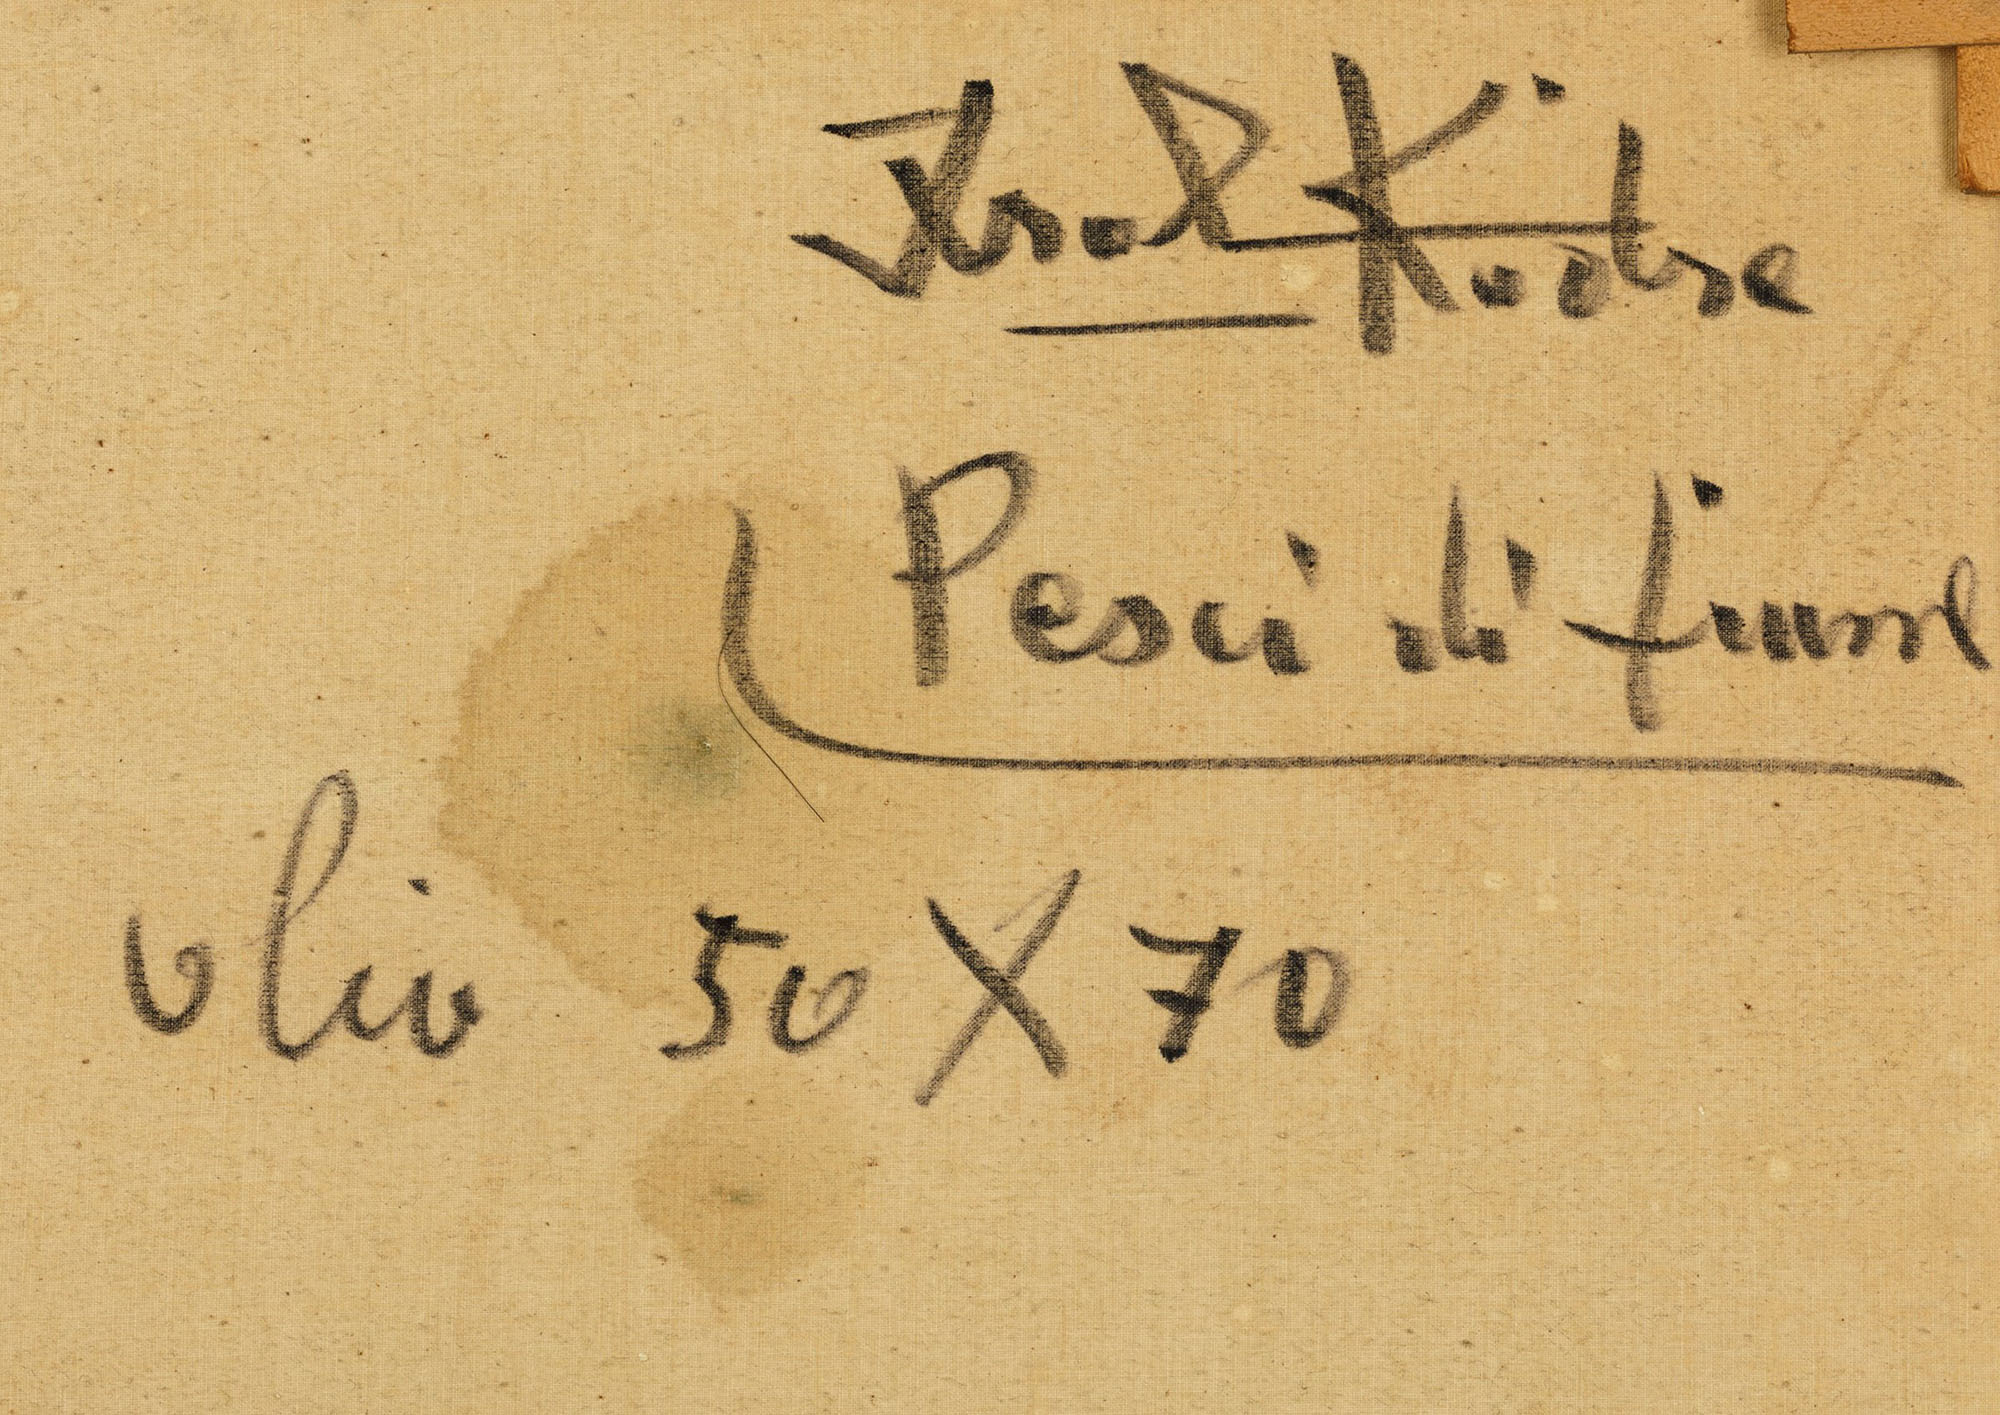 Ibrahim Kodra
Pesci di fiume
olio 50 X 70